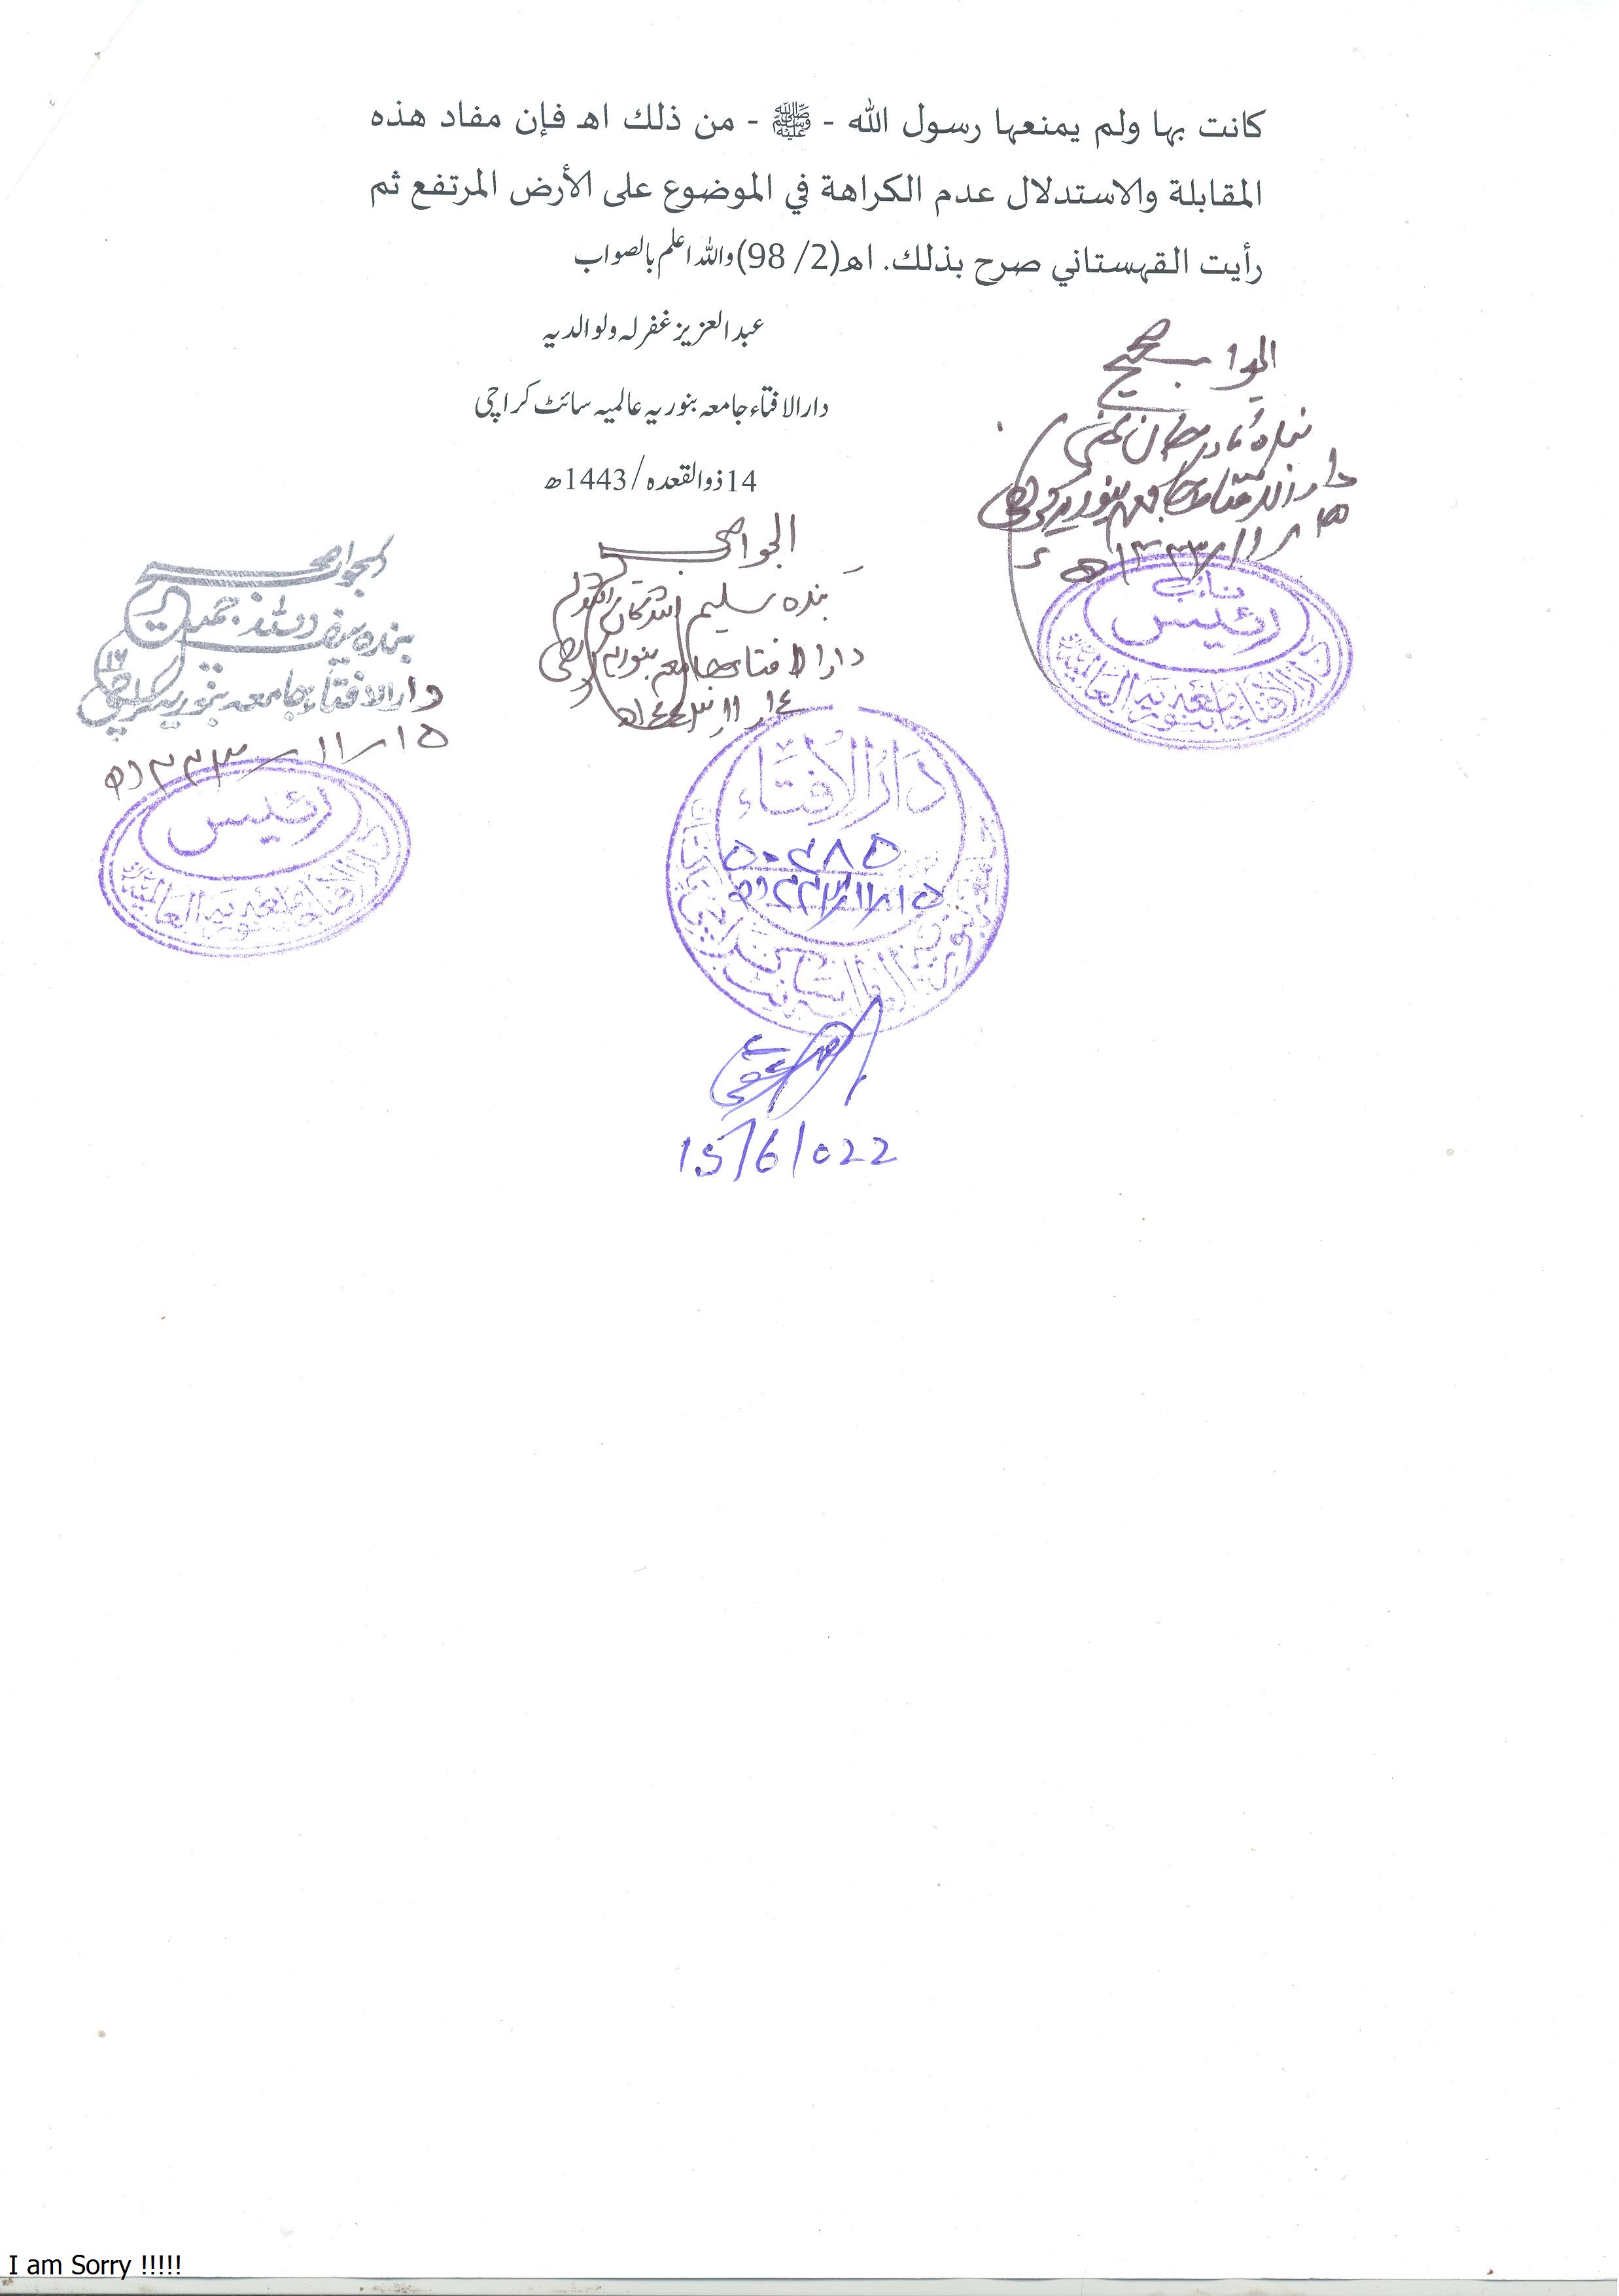 كانت بها ولم يمنعها رسول الله - ﷺ - من ذلك اهـ فإن مفاد هذه
المقابلة والاستدلال عدم الكراهة في الموضوع على الأرض المرتفع ثم
رأيت القهستاني صرح بذلك. اهـ(2/ 98)واللہ اعلم بالصواب
عبدالعزیز غفرلہ ولوالدیہ
دارالافتاء جامعہ بنوریہ عالمیہ سائٹ کراچی
14ذوالقعدہ/1443ھ
الجواب صحیح
بندہ نادر جان
دارالافتاء جامعہ بنوریہ کراچی
نائب
رئیس
الجواب صحیح
بندہ سلیم
دارالافتاء جامعہ بنوریہ کراچی
١٤؍١١؍١٤٤٣ھ
الجواب صحیح
بندہ
دارالافتاء جامعہ بنوریہ کراچی
۱۵؍۱۱؍۱۴۴۳ھ
رئیس
دار الافتاء جامعہ بنوریہ العالمیہ
دَارُالْاِفْتَاء
۵۰۴۸۵
۱۵؍۱۱؍۱۴۴۳ھ
15/6/022
I am Sorry !!!!!